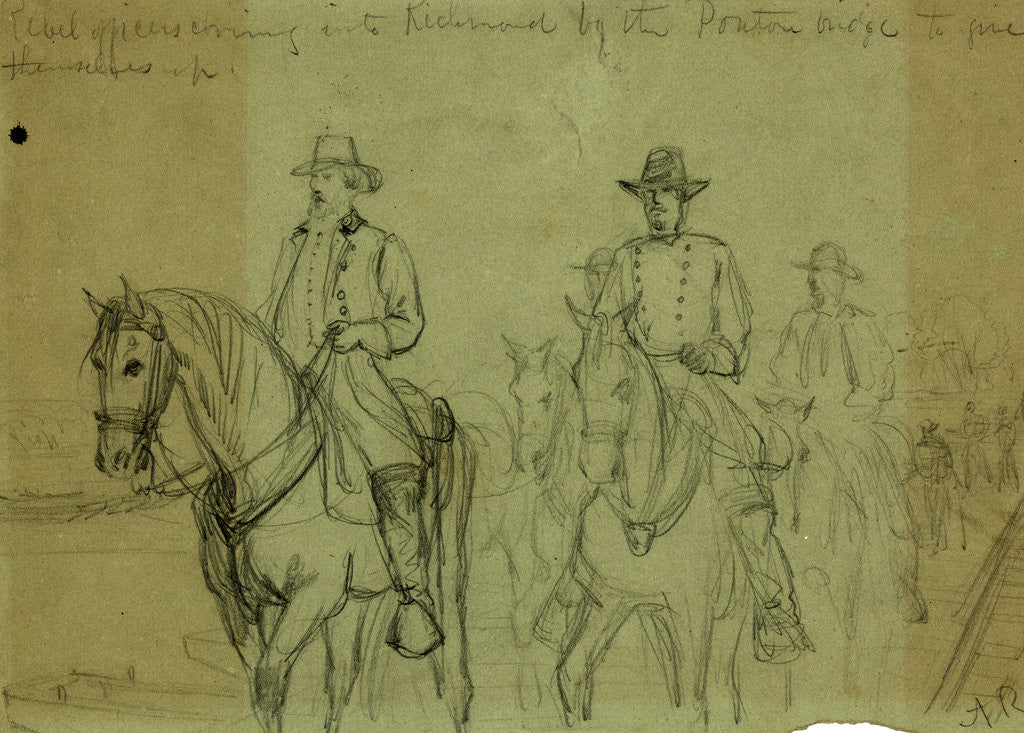 Rebel officers coming into Richmond by the Ponton bridge to give
themselves up.
A.R